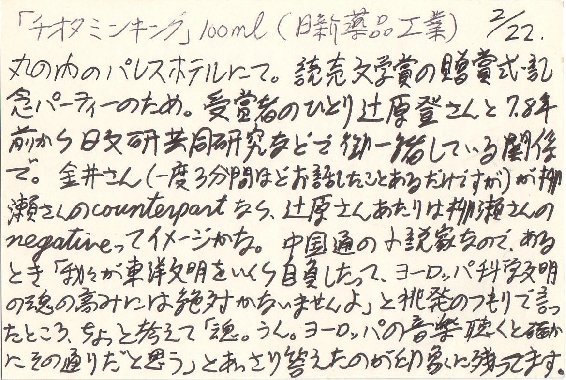 「チオタミンキング」100ml(日新薬品工業) 2/22.
丸の内のパレスホテルにて。読売文学賞の贈賞式・記
念パーティーのため。受賞者のひとり辻原登さんと7,8年
前から日文研共同研究などで御一緒している関係
で。金井さん(一度3分間ほどお話したことあるだけですが)が棚
瀬さんのcounterpartなら、辻原さんあたりは棚瀬さんの
negativeってイメージかな。中国通の小説家なので、ある
とき「我々が東洋文明をいくら自負したって、ヨーロッパ科学文明
の魂の高みには絶対かないませんよ」と挑発のつもりで言っ
たところ、ちょっと考えて「魂。うん。ヨーロッパの音楽聴くと確か
にその通りだと思う」とあっさり答えたのが印象に残ってます。